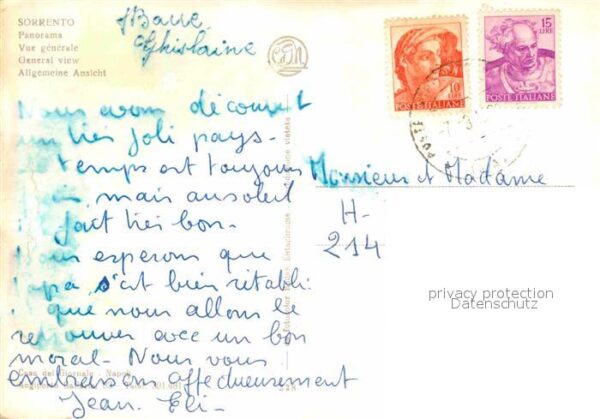 SORRENTO
Panorama
Vue générale
General view
Allgemeine Ansicht
Ghislaine
10
LIRE
POSTE ITALIANE
15
LIRE
POSTE ITALIANE
Nous avons découvert
un très joli pays.
temps est toujours
mais au soleil
fait très bon.
esperons que
papa s'est bien rétabli
que nous allons le
retrouver avec un bon
moral. Nous vous
embrassons affectueusement
Jean. Eli.
Monsieur et Madame
H-
214
privacy protection
Datenschutz
Casa del Giornale - Napoli